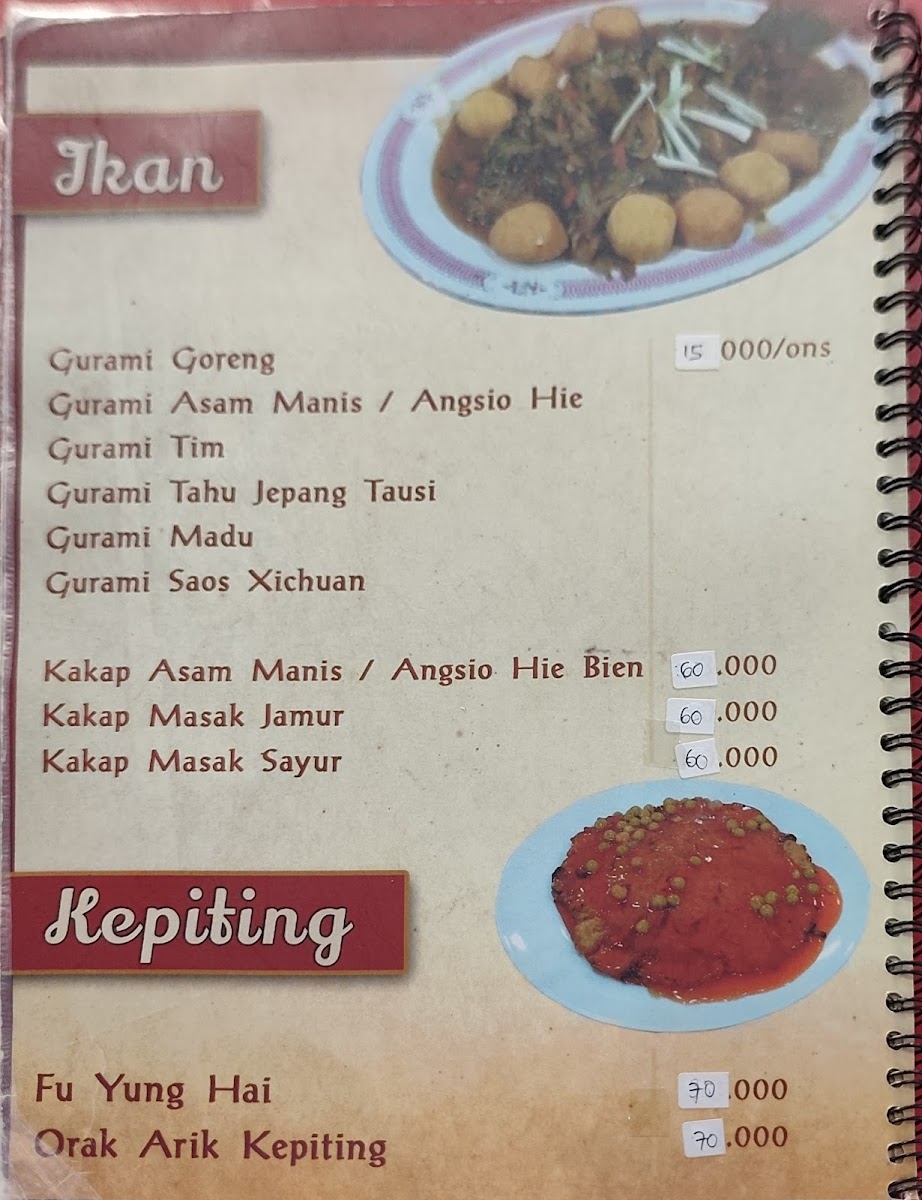 Ikan
Gurami Goreng 15 000/ons
Gurami Asam Manis / Angsio Hie
Gurami Tim
Gurami Tahu Jepang Tausi
Gurami Madu
Gurami Saos Xichuan
Kakap Asam Manis / Angsio Hie Bien 60.000
Kakap Masak Jamur 60.000
Kakap Masak Sayur 60.000
Kepiting
Fu Yung Hai 70.000
Orak Arik Kepiting 70.000